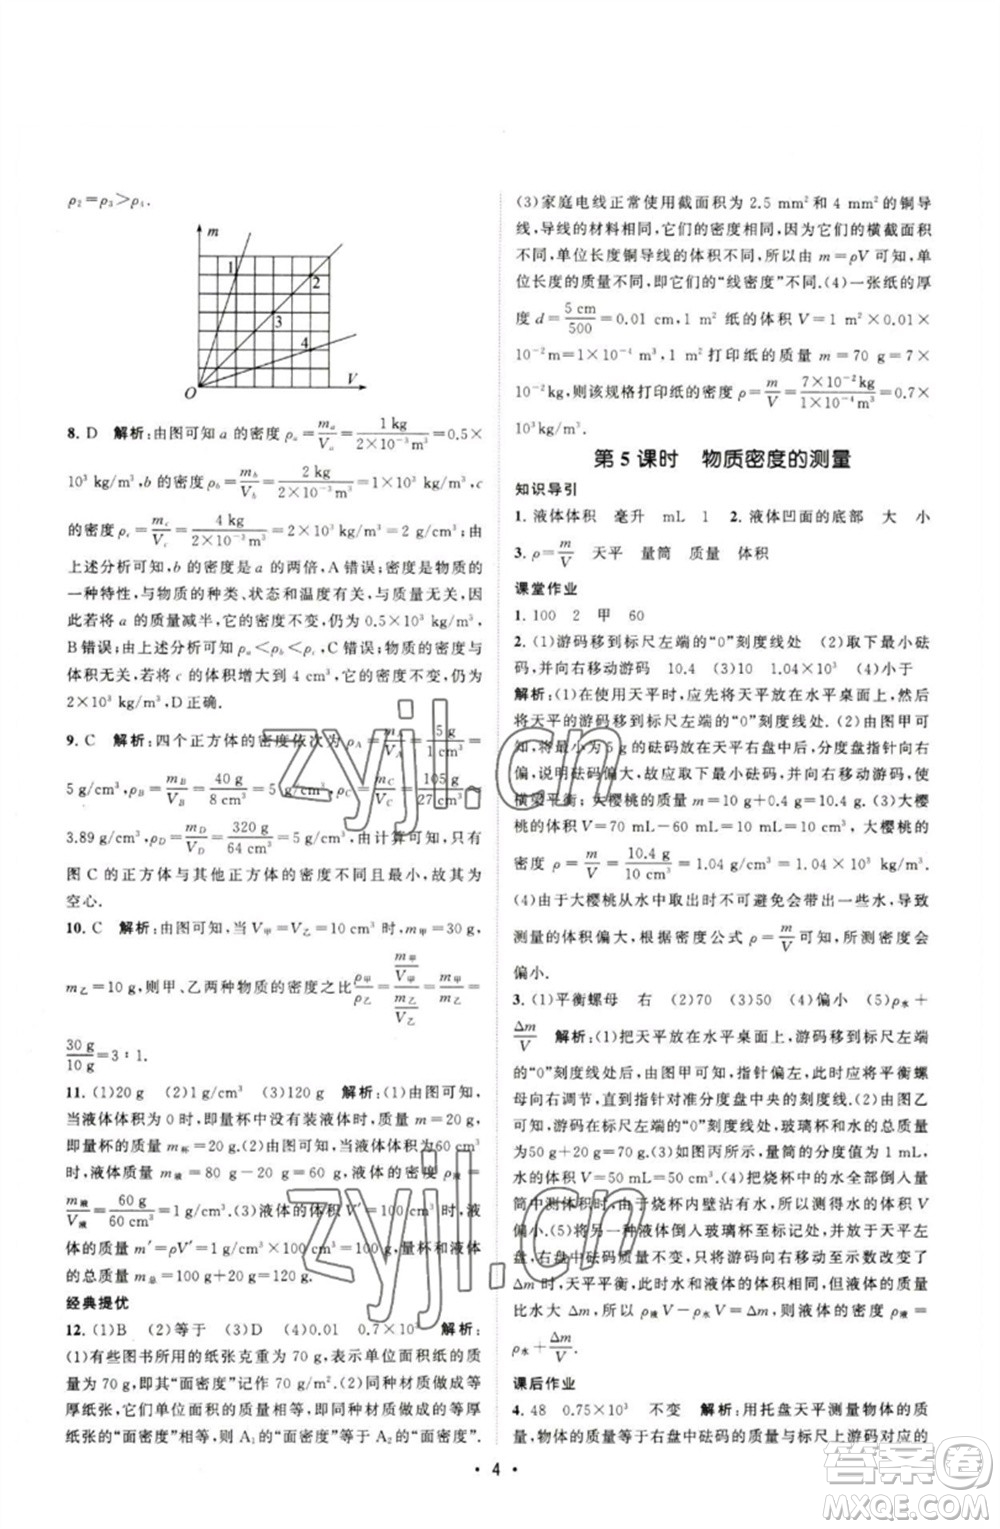 ρ₂=ρ₃>ρ₄.
m
1
2
3
4
O
V
8. D 解析:由图可知 a 的密度 ρₐ=mₐ/Vₐ=1 kg/(2×10⁻³ m³)=0.5×
10³ kg/m³,b 的密度 ρ_b=m_b/V_b=2 kg/(2×10⁻³ m³)=1×10³ kg/m³,c
的密度 ρ_c=m_c/V_c=4 kg/(2×10⁻³ m³)=2×10³ kg/m³=2 g/cm³;由
上述分析可知,b 的密度是 a 的两倍,A 错误;密度是物质的
一种特性,与物质的种类、状态有关,与质量和体积无关,因
此若将 a 的质量减半,它的密度不变,仍为0.5×10³ kg/m³,
B 错误;由上述分析可知 ρₐ<ρ_b<ρ_c,C 错误;密度与质量、
体积无关,若将 c 的体积增大到 4 cm³,它的密度不变,仍为
2×10³ kg/m³,D 正确.
9. C 解析:四个正方体的密度依次为 ρ_A=m_A/V_A=5 g/1 cm³=
5 g/cm³,ρ_B=m_B/V_B=40 g/8 cm³=5 g/cm³,ρ_C=m_C/V_C=105 g/27 cm³≈
3.89 g/cm³,ρ_D=m_D/V_D=320 g/64 cm³=5 g/cm³,由计算可知,只有
图 C 的正方体与其他正方体的密度不相同且最小,故其为
空心.
10. C 解析:由图可知,当 V甲=V乙=10 cm³ 时,m甲=30 g,
m乙=10 g,则甲、乙两种物质的密度之比 ρ甲/ρ乙=(m甲/V甲)/(m乙/V乙)=
30 g/10 g=3∶1.
11. (1)20 g (2)1 g/cm³ (3)120 g 解析:(1)由图可知,
当液体体积为 0 时,即量杯中没有装液体时,质量 m=20 g,
即量杯的质量 m杯=20 g.(2)由图可知,当液体体积为 60 cm³
时,液体质量 m液=80 g-20 g=60 g,液体的密度 ρ液=
m液/V液=60 g/60 cm³=1 g/cm³.(3)液体的体积 V′=100 cm³时,液
体的质量 m′=ρV′=1 g/cm³×100 cm³=100 g,量杯和液体
的总质量 m总=100 g+20 g=120 g.
经典提优
12. (1)B (2)等于 (3)D (4)0.01 0.7×10³ 解析:
(1)有些图书所用的纸张克重为 70 g,表示单位面积纸的质
量为 70 g,其“面密度”记作 70 g/m².(2)同种材料做成等
厚纸张,单位面积的体积相同,质量相同,即同种材料做成等厚
纸张的“面密度”相等,所以 A₁的“面密度”等于 A₂的“面密度”.
(3)家庭电线正常使用截面积为 2.5 mm²和 4 mm²的铜导
线,导线的材料相同,它们的密度相同,它们的横截面积
不同,单位长度铜导线的体积不同,所以由 m=ρV 可知,单
位长度的质量不同,即它们的“线密度”不同.(4)一张纸的厚
度 d=5 cm/500=0.01 cm,1 m² 纸的体积 V=1 m²×0.01×
10⁻² m=1×10⁻⁴ m³,1 m²打印纸的质量 m=70 g=7×
10⁻² kg,则该规格打印纸的密度 ρ=m/V=(7×10⁻² kg)/(1×10⁻⁴ m³)=0.7×
10³kg/m³.
第 5 课时 物质密度的测量
知识导引
1. 液体体积 毫升 mL 1 2. 液体凹面的底部 大 小
3. ρ=m/V 天平 量筒 质量 体积
课堂作业
1. 100 2 甲 60
2. (1)游码移到标尺左端的“0”刻度线处 (2)取下最小砝
码,并向右移动游码 10.4 (3)10 1.04×10³ (4)小于
解析:(1)在使用天平时,应先将天平放在水平桌面上,然后
将天平的游码移到标尺左端的“0”刻度线处.(2)由图甲可
知,将最小为 5 g的砝码放在天平右盘中后,分度盘指针向右
偏,说明砝码偏大,故应取下最小砝码,并向右移动游码,使
横梁平衡;大樱桃的质量为 10 g+0.4 g=10.4 g.(3)大樱
桃的体积 V=70 mL-60 mL=10 mL=10 cm³,大樱桃的
密度 ρ=m/V=10.4 g/10 cm³=1.04 g/cm³=1.04×10³ kg/m³.
(4)由于大樱桃从水中取出时不可避免会带出一些水,导致
测量的体积偏大,根据密度公式 ρ=m/V可知,所测密度会
偏小.
3. (1)平衡螺母 右 (2)70 (3)50 (4)偏小 (5)ρ水+
Δm/V 解析:(1)把天平放在水平桌面上,游码移到标尺左端
的“0”刻度线处,由图甲可知,指针偏左,所以应将平衡螺
母向右调节,直到指针对准分度盘中央的刻度线.(2)由图乙
可知,标尺的分度值为 0.2 g,玻璃杯和水的总质量 m=
50 g+20 g=70 g.(3)如图丙所示,量筒的分度值为 1 mL,
水的体积 V=50 mL=50 cm³.(4)把烧杯中的水全部倒入量
筒中测体积时,由于烧杯内壁沾有水,所以测得水的体积 V
偏小.(5)将另一种液体倒入玻璃杯至标记处,并放于天平左
盘,右盘中砝码质量不变,只需游码向右移动至示数改变了
Δm,天平平衡,此时水和液体的体积相等,但液体的质量
比水大 Δm,所以 ρ液V-ρ水V=Δm,则液体的密度 ρ液=
ρ水+Δm/V.
课后作业
4. 48 0.75×10³ 不变 解析:用托盘天平测量物体的质
量,物体的质量等于右盘中砝码的质量与游码对应的
• 4 •
zyjl.cn
zyjl.cn
答案圈
MXQE.COM